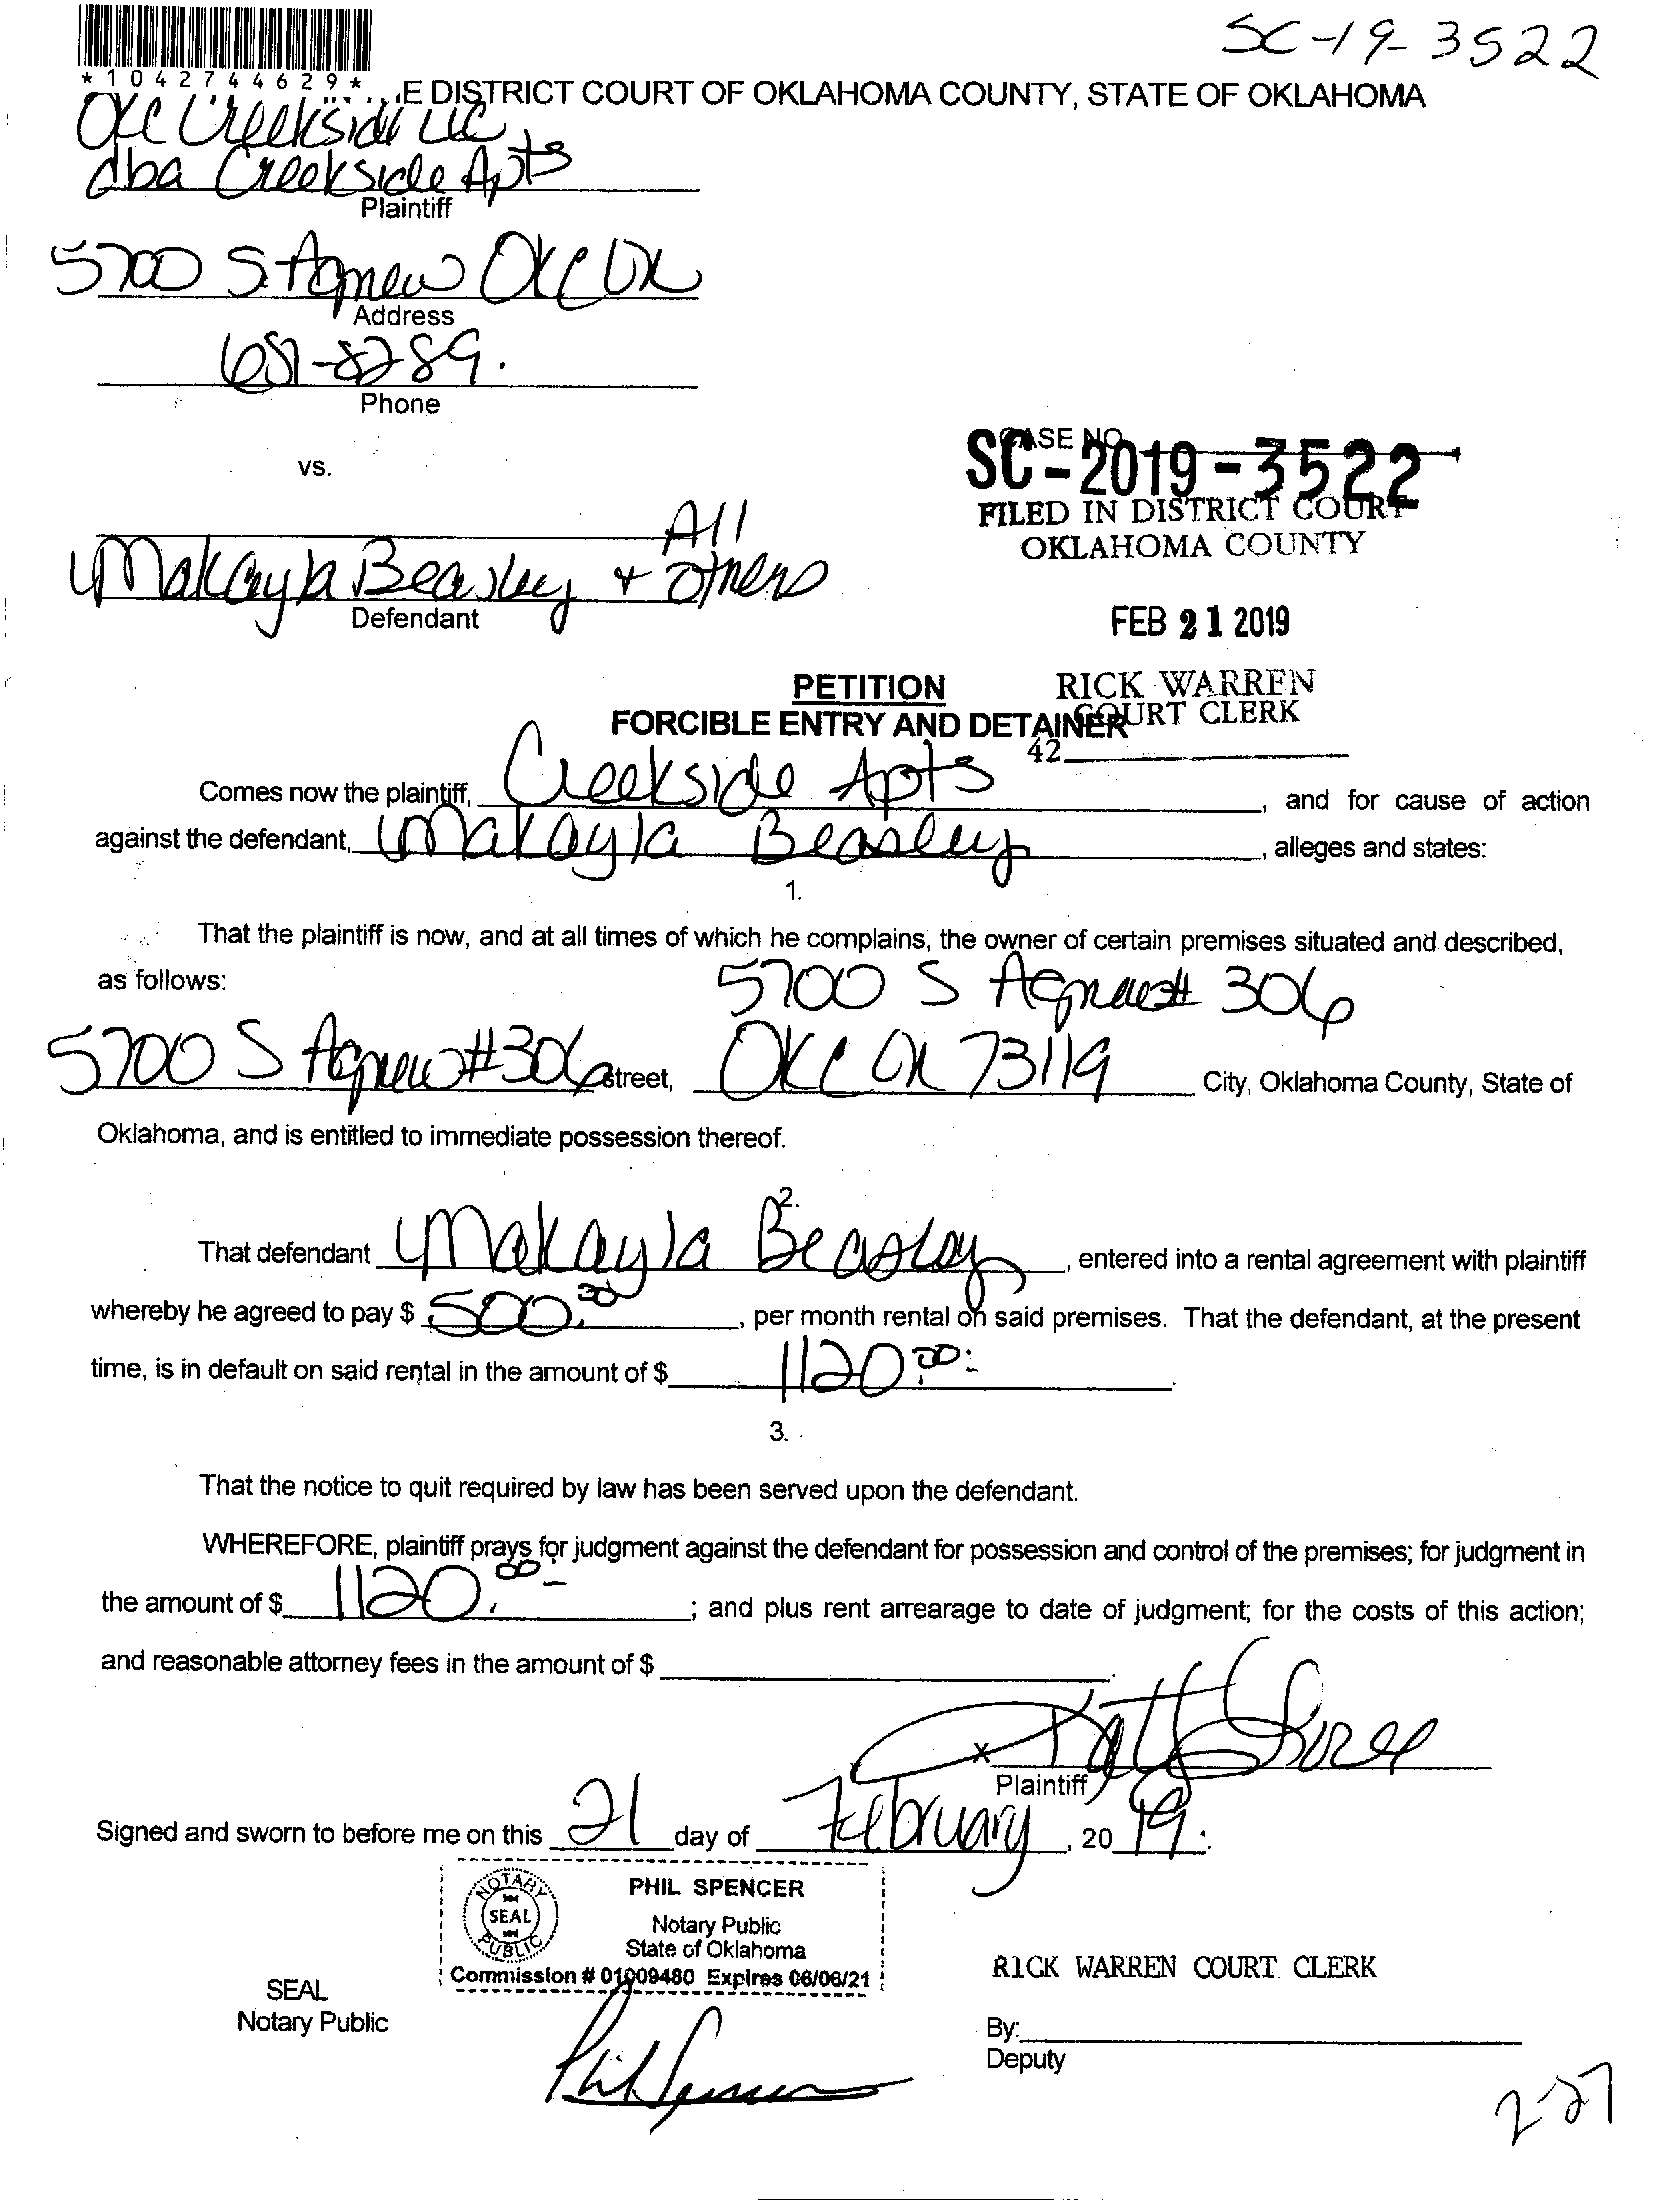 SC-19-3522
*1042744629*
E DISTRICT COURT OF OKLAHOMA COUNTY, STATE OF OKLAHOMA
OKC Creekside LLC
dba Creekside Apts
Plaintiff
5700 S. Agnew OKC OK
Address
681-8289.
Phone
CASE NO.
SC-2019-3522
vs.
FILED IN DISTRICT COURT
OKLAHOMA COUNTY
All
Makayla Beasley + others
Defendant
FEB 21 2019
PETITION
RICK WARREN
COURT CLERK
FORCIBLE ENTRY AND DETAINER
42
Comes now the plaintiff, Creekside Apts, and for cause of action
against the defendant, Makayla Beasley, alleges and states:
1.
That the plaintiff is now, and at all times of which he complains, the owner of certain premises situated and described,
as follows: 5700 S Agnew # 306
5700 S Agnew #306 street, OKC OK 73119 City, Oklahoma County, State of
Oklahoma, and is entitled to immediate possession thereof.
2.
That defendant Makayla Beasley, entered into a rental agreement with plaintiff
whereby he agreed to pay $ 500.00, per month rental on said premises. That the defendant, at the present
time, is in default on said rental in the amount of $ 1120.00
3.
That the notice to quit required by law has been served upon the defendant.
WHEREFORE, plaintiff prays for judgment against the defendant for possession and control of the premises; for judgment in
the amount of $ 1120.00; and plus rent arrearage to date of judgment; for the costs of this action;
and reasonable attorney fees in the amount of $
x
Plaintiff
Signed and sworn to before me on this 21 day of February, 20 19.
NOTARY PUBLIC
SEAL
PHIL SPENCER
Notary Public
State of Oklahoma
Commission # 01009480 Expires 06/06/21
SEAL
Notary Public
Phil Spencer
RICK WARREN COURT CLERK
By:
Deputy
2-27